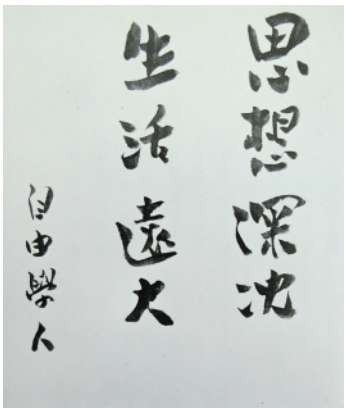 思想深沈
生活遠大
自由學人